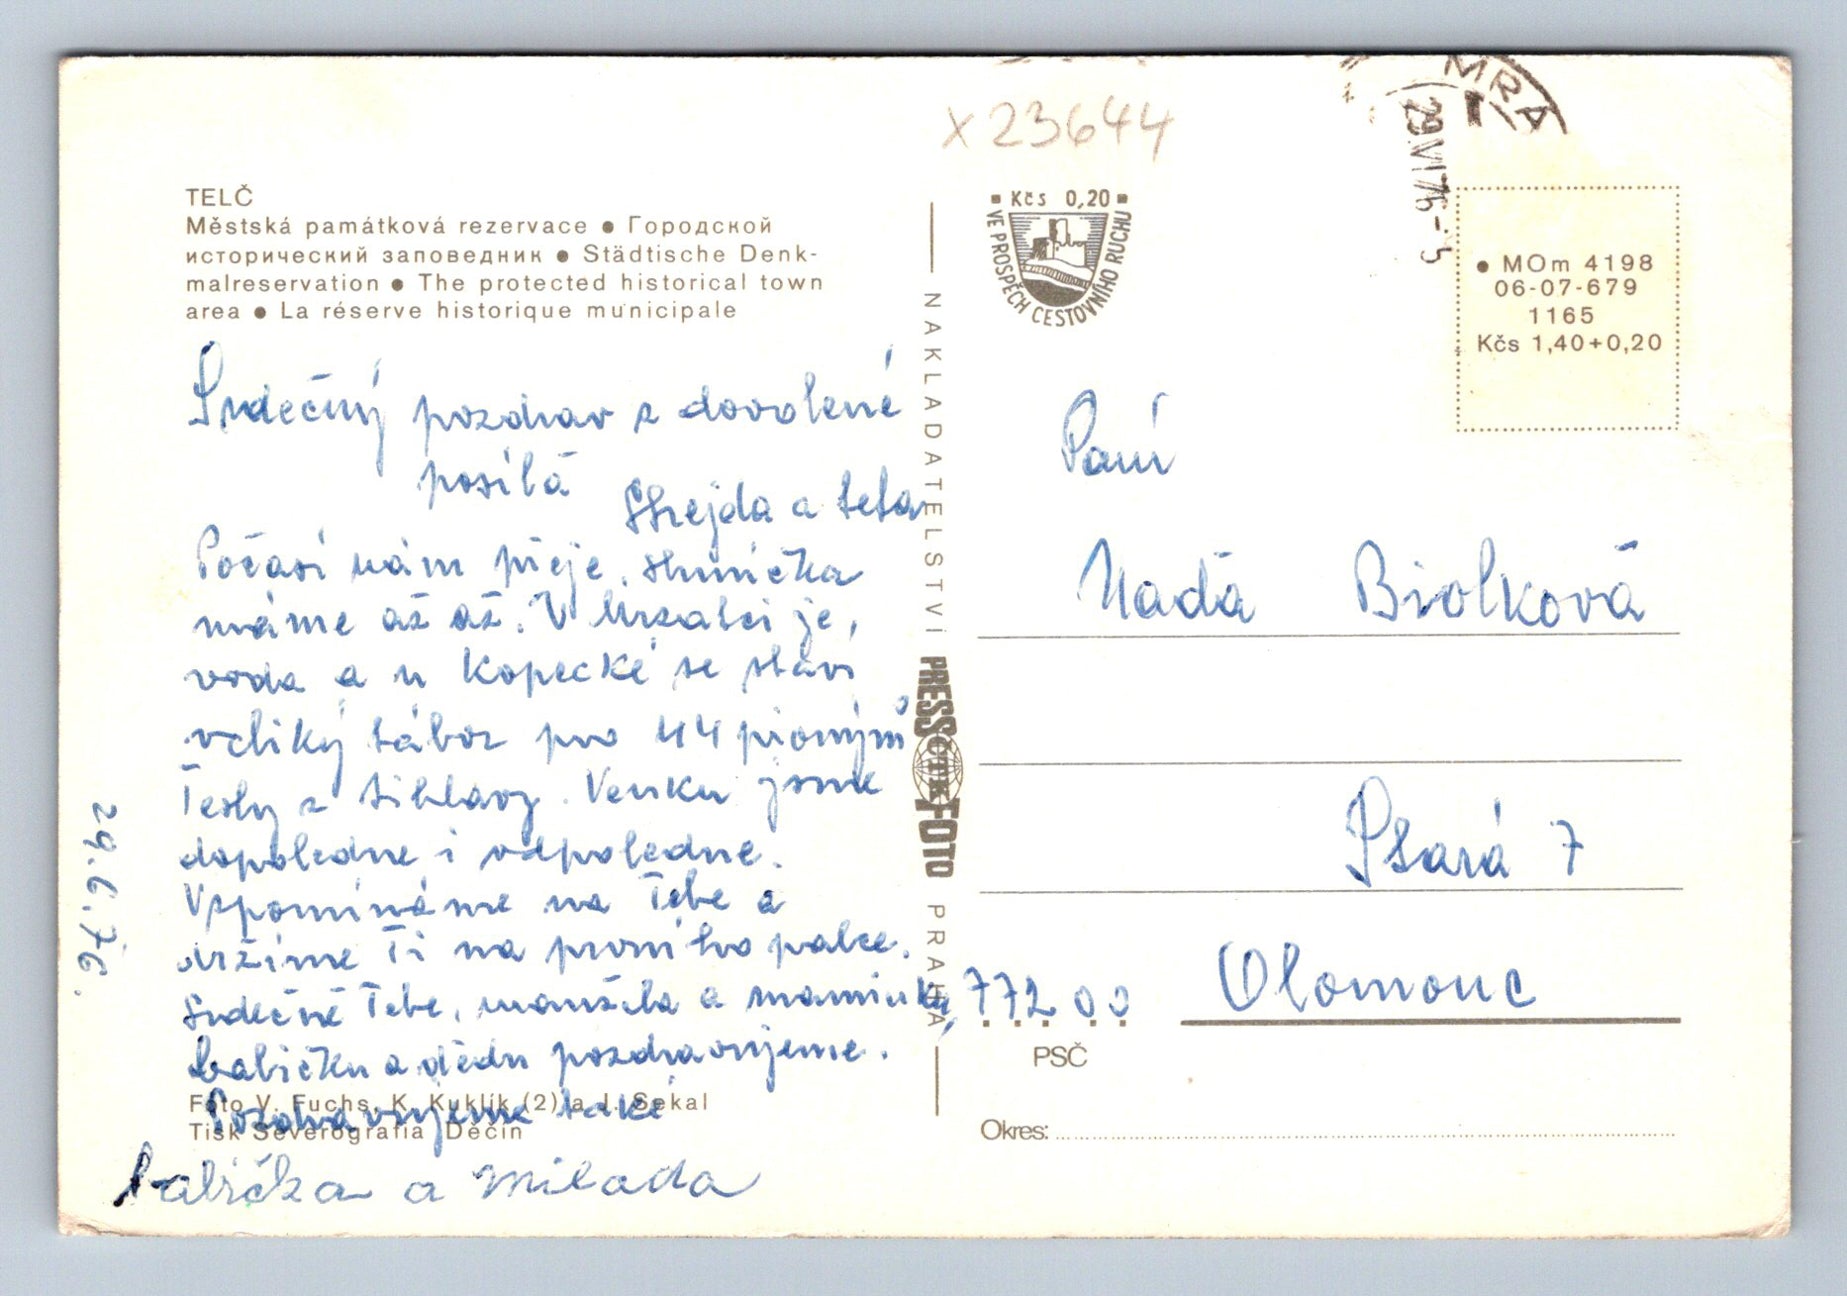 X 23644
MRA
29.VI.76-5
TELČ
Městská památková rezervace ● Городской
исторический заповедник ● Städtische Denk-
malreservation ● The protected historical town
area ● La réserve historique municipale
Srdečný pozdrav z dovolené
posílá
Strejda a teta
Počasí nám přeje, sluníčka
máme až až. V Mrzatci je,
voda a u Kopecké se staví
veliký tábor pro 44 pionýrů
Tesly z Jihlavy. Venku jsme
dopoledne i odpoledne.
Vzpomínáme na Tebe a
držíme Ti na prvního palce.
Srdečně Tebe, manžela a maminku,
babičku a dědu pozdravujeme.
Pozdravujeme také
babička a Milada
29.6.76.
Foto V. Fuchs, K. Kuklík (2) a J. Sekal
Tisk Severografia Děčín
NAKLADATELSTVÍ PRESSFOTO PRAHA
ČTK
Kčs 0,20
VE PROSPĚCH CESTOVNÍHO RUCHU
● MOm 4198
06-07-679
1165
Kčs 1,40+0,20
Paní
Naďa Biolková
Ptará 7
772 00 Olomouc
PSČ
Okres: